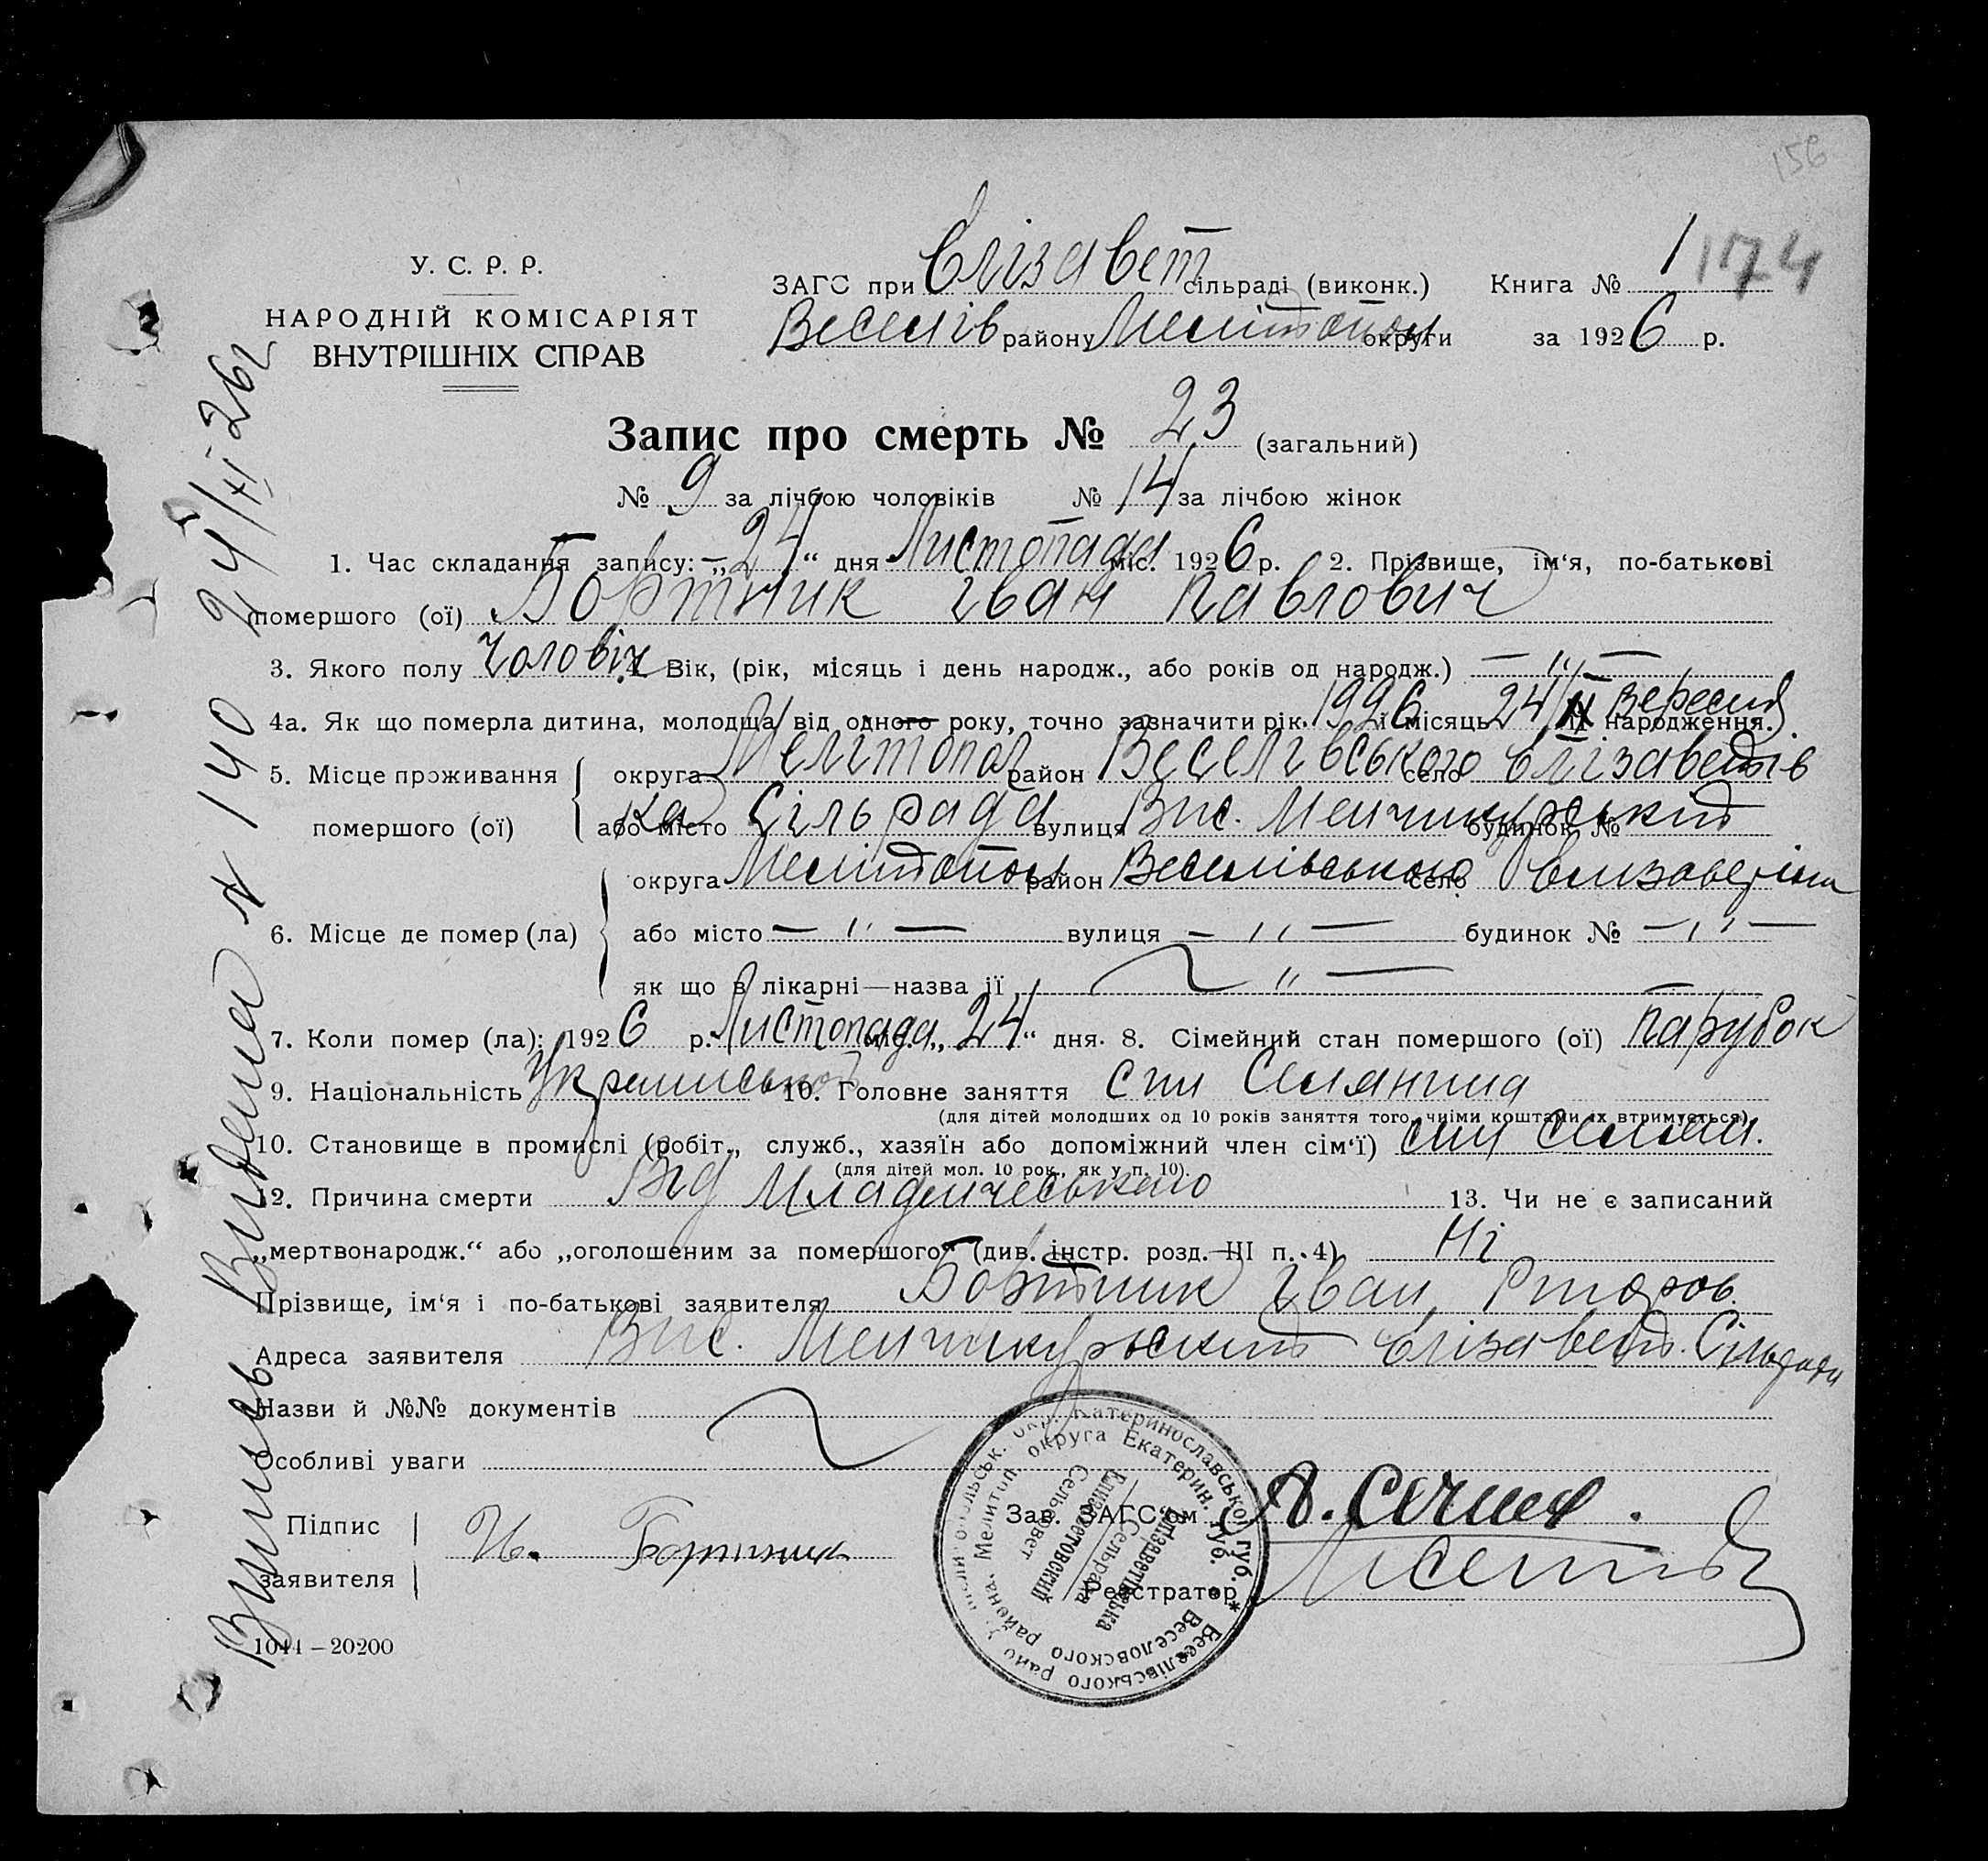 156
У. С. Р. Р.
НАРОДНІЙ КОМІСАРІЯТ
ВНУТРІШНІХ СПРАВ
ЗАГС при Єлізавет сільраді (виконк.) Книга № 1 174
Веселів району Мелітопол округи за 1926 р.
Запис про смерть № 23 (загальний)
№ 9 за лічбою чоловіків № 14 за лічбою жінок
1. Час складання запису: „24“ дня Листопада міс. 1926 р. 2. Прізвище, ім‘я, по-батькові
помершого (ої) Бортник Іван Павлович
3. Якого полу Чоловіч 4. Вік, (рік, місяць і день народж., або років од народж.) — „ —
4а. Як що померла дитина, молодща від одного року, точно зазначити рік 1926 її місяць 24/ Вересня її народження.
5. Місце проживання округа Мелітопол район Веселівського село Єлізаветів
помершого (ої) або місто ка Сільрада вулиця Вис. Менчикурський будинок №
округа Мелітопол район Веселівського село
6. Місце де помер (ла) або місто — „ — вулиця — „ — будинок № — „ —
як що в лікарні—назва її „ —
7. Коли помер (ла): 1926 р. Листопада міс. „24“ дня. 8. Сімейний стан помершого (ої) парубок
9. Національність 10. Головне заняття син Селянина
(для дітей молодших од 10 років заняття того, чиїми коштами їх втримується)
10. Становище в промислі (робіт., служб., хазяїн або допоміжний член сім‘ї) син селян.
(для дітей мол. 10 рок., як у п. 10).
12. Причина смерти Від Младенческого 13. Чи не є записаний
„мертвонародж.“ або „оголошеним за помершого“ (див. інстр. розд. III п. 4) Ні
Прізвище, ім‘я і по-батькові заявителя Бортник Іван
Адреса заявителя Вис. Менчикурський Єлізавет. Сільради
Назви й №№ документів
Особливі уваги
Підпис
заявителя И. Бортник
Зав. ЗАГС‘ом
Реєстратор
Мелітопольськ. окр. Катеринославської губ. * Веселівського району
Мелитоп. округа Екатерин. губ. * Веселовского района
Єлізаветівська
Сельрада
Елизаветовский
Сельсовет
1044—20200
Випись Видана № 140 24/XI 26 г